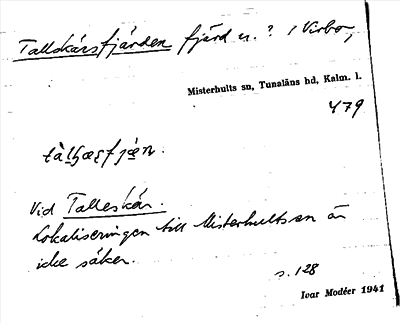 Tallskärsfjärden fjärd n. ? i Virbo,
Misterhults sn, Tunaläns hd, Kalm. l.
479
Vid Talleskär.
Lokaliseringen till Misterhults sn är
icke säker.
s. 128
Ivar Modéer 1941